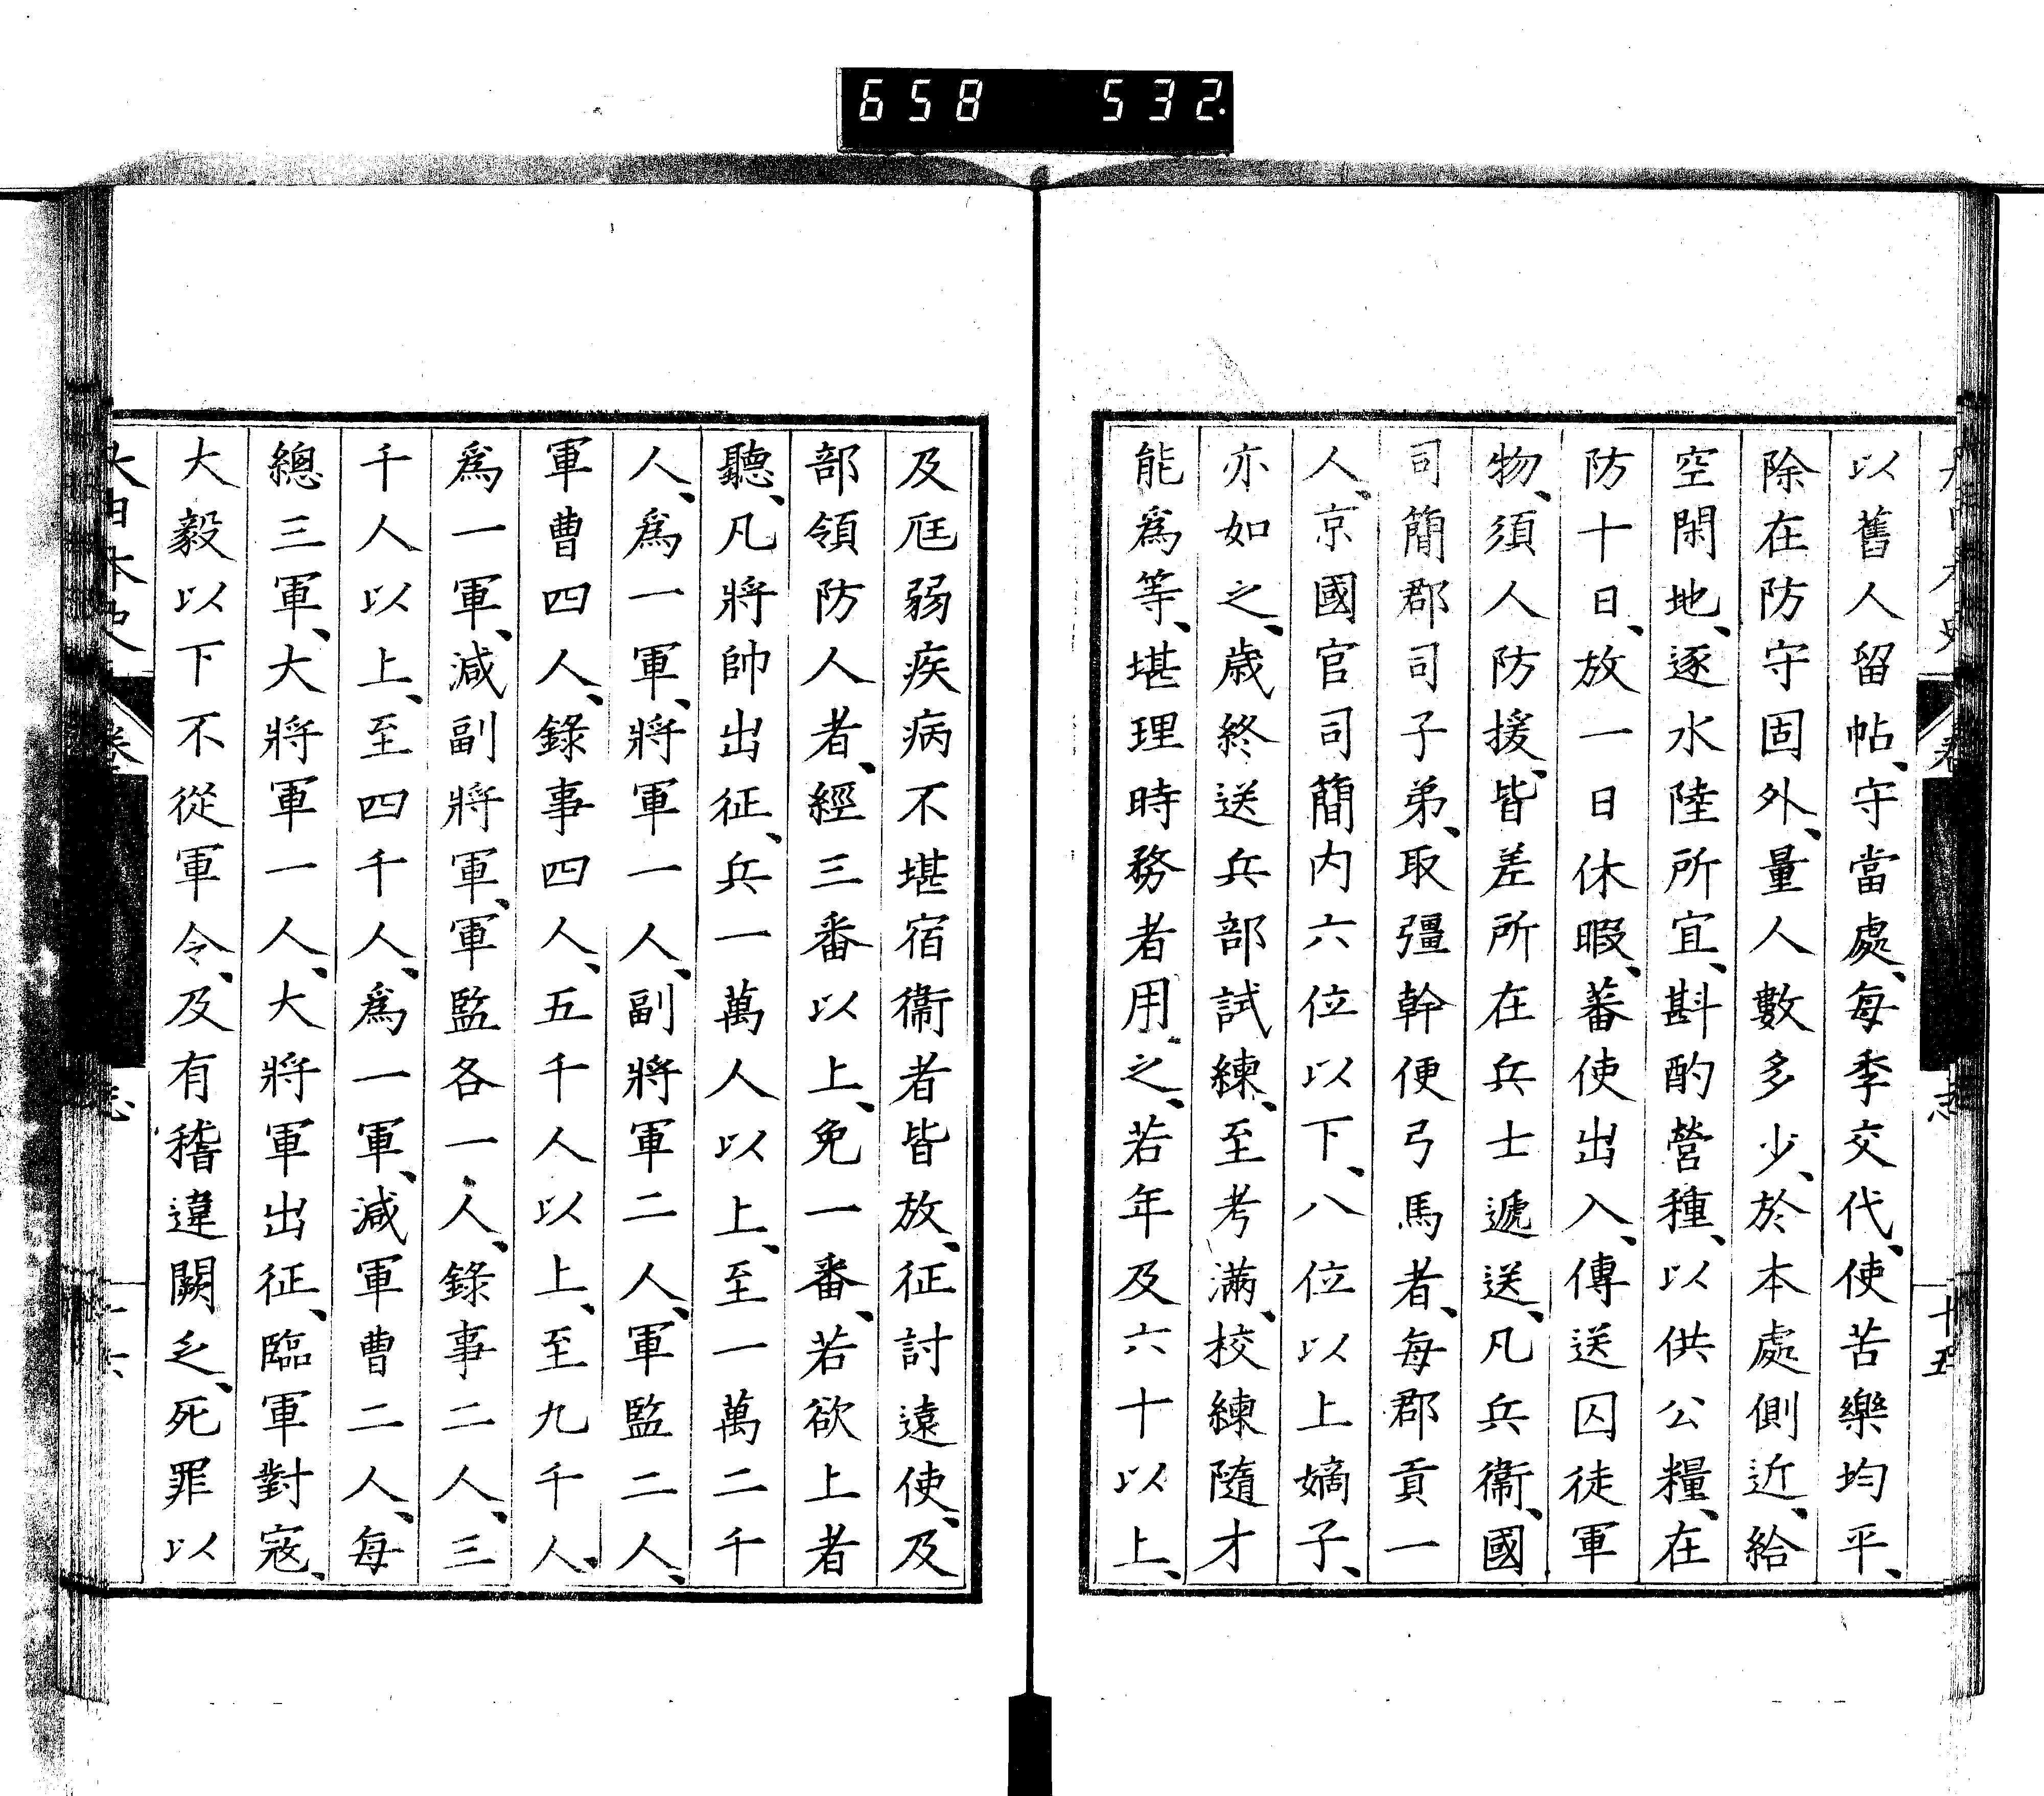 658 532
以舊人留帖、守當處、每季交代、使苦樂均平、
除在防守固外、量人數多少、於本處側近、給
空閑地、逐水陸所宜、斟酌營種、以供公糧、在
防十日、放一日休暇、蕃使出入、傳送囚徒軍
物、須人防援、皆差所在兵士遞送、凡兵衞、國
司簡郡司子弟、取彊幹便弓馬者、每郡貢一
人、京國官司簡内六位以下、八位以上嫡子、
亦如之、歲終送兵部試練、至考滿、校練隨才
能爲等、堪理時務者用之、若年及六十以上、
及尫弱疾病不堪宿衞者皆放、征討遠使、及
部領防人者、經三番以上、免一番、若欲上者
聽、凡將帥出征、兵一萬人以上、至一萬二千
人、爲一軍、將軍一人、副將軍二人、軍監二人、
軍曹四人、錄事四人、五千人以上、至九千人、
爲一軍、減副將軍、軍監各一人、錄事二人、三
千人以上、至四千人、爲一軍、減軍曹二人、每
總三軍、大將軍一人、大將軍出征、臨軍對寇、
大毅以下不從軍令、及有稽違闕乏、死罪以
志
十五
大日本史
卷
志